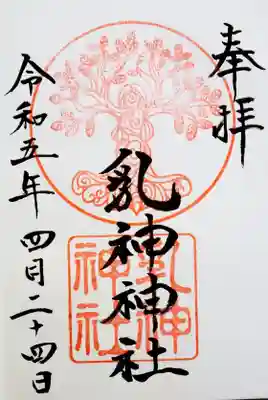 奉拝
乳神神社
乳神
神社
令和五年 四月二十四日